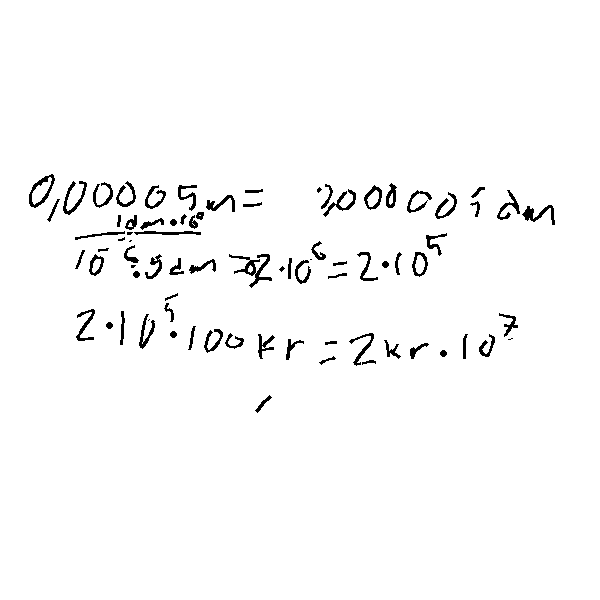 0,00005m = 0,000005dm
1dm·10⁰
10⁻⁶·5dm = 0,2·10⁶ = 2·10⁵
2·10⁵·100kr = 2kr·10⁷